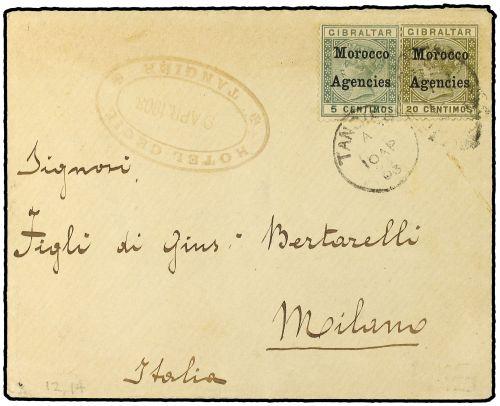 GIBRALTAR
Morocco
Agencies
5 CENTIMOS
GIBRALTAR
Morocco
Agencies
20 CENTIMOS
TANGIER
A
10 AP
03
HOTEL CECIL
APR 1903
TANGIER
Signori
Figli di Gius. Bertarelli
Milano
Italia
12,14